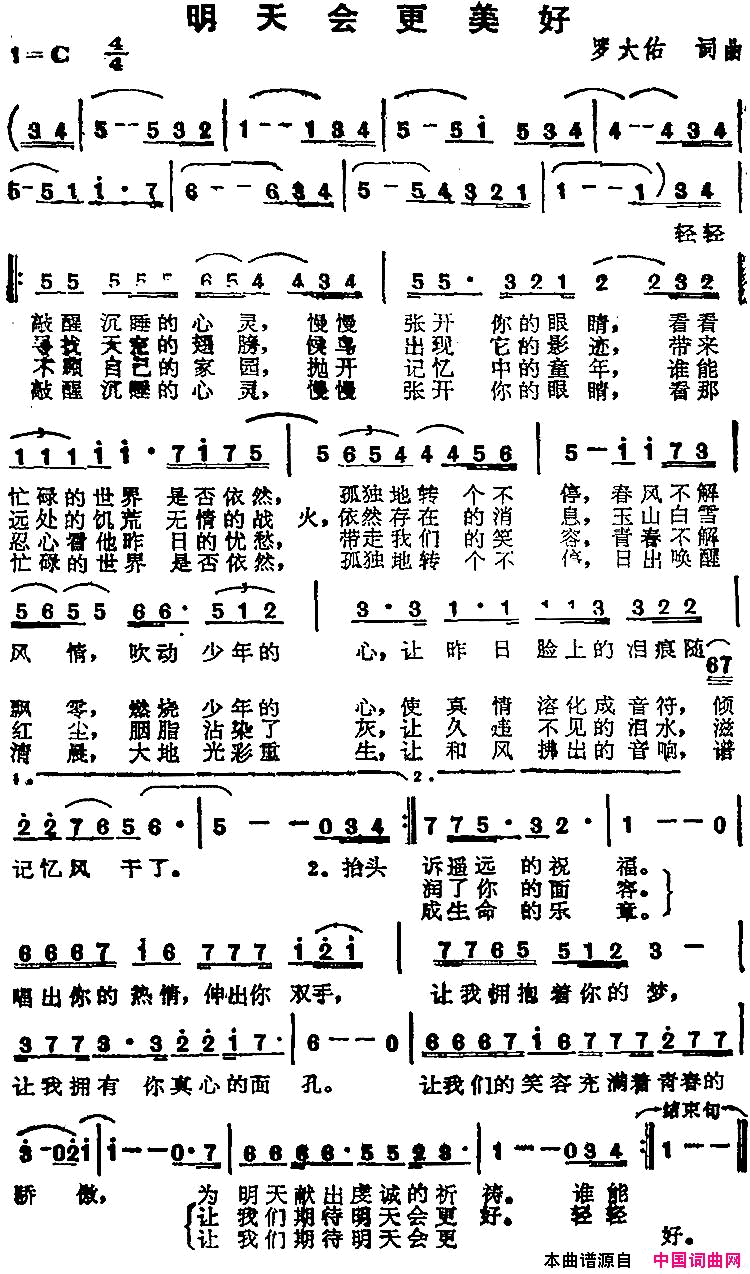 明天会更美好
1=C 4/4
罗大佑 词曲
(34 | 5--532 | 1--134 | 5--5i 534 | 4--434 |
5-51i·7 | 6--634 | 5-54321 | 1--1) 34
轻轻
55 555 654 434 | 55·321 2 232
敲醒沉睡的心灵，慢慢 张开 你的眼睛，看看
寻找天空的翅膀，候鸟 出现 它的影迹，带来
不顾自己的家园，抛开 记忆 中的童年，谁能
敲醒沉睡的心灵，慢慢 张开 你的眼睛，看那
111 ii·7i75 | 5654 4456 | 5-ii73 |
忙碌的世界 是否依然， 孤独地转 个不 停，春风不解
远处的饥荒 无情的战 火，依然存在 的消 息，玉山白雪
忍心看他昨 日的忧愁， 带走我们 的笑 容，青春不解
忙碌的世界 是否依然， 孤独地转 个不 停，日出唤醒
5655 66·512 | 3·31·1 113 322 |
风 情，吹动 少年的 心，让 昨 日 脸上的 泪痕随
67
飘 零，燃烧 少年的 心，使 真 情 溶化成音符，倾
红 尘，胭脂 沾染了 灰，让 久 违 不见的泪水，滋
清 晨，大地 光彩重 生，让 和 风 拂出的音响，谱
1. 2.
227656· | 5--034 :| 775·32· | 1--0
记忆风 干了。 2. 抬头 诉遥远 的祝 福。
润了你 的面 容。
成生命 的乐 章。
6667 i6 777 i2i | 7765 5123- |
唱出你的 热情，伸出你 双手， 让我拥抱着你的梦，
3773·3 22i7· | 6--0 | 6667i6777277
让我拥有 你真心的面 孔。 让我们的笑容充满着青春的
结束句
3-02i | i--0·7 | 6666·5523· | 1--034 :| 1--
骄 傲， 为 明天献出虔诚的祈 祷。 谁能
让 我们期待明天会更 好。 轻轻
让 我们期待明天会更 好。
本曲谱源自 中国词曲网